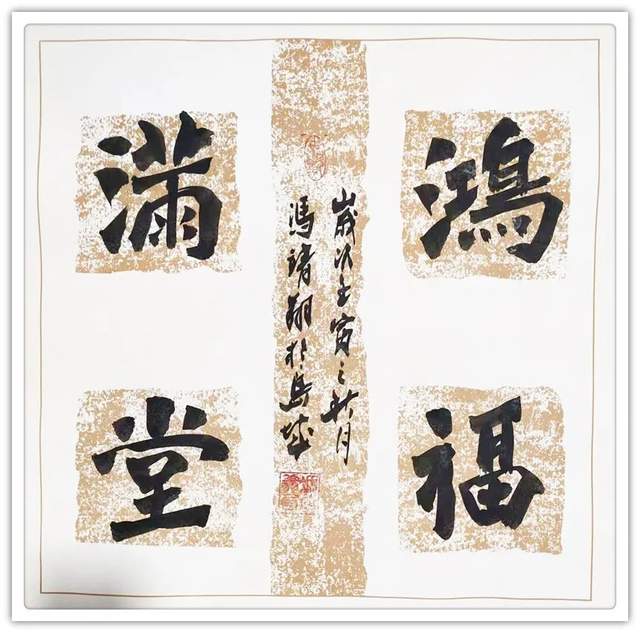 鴻福
滿堂
歲次壬寅之秋月
馮靖翔於島城